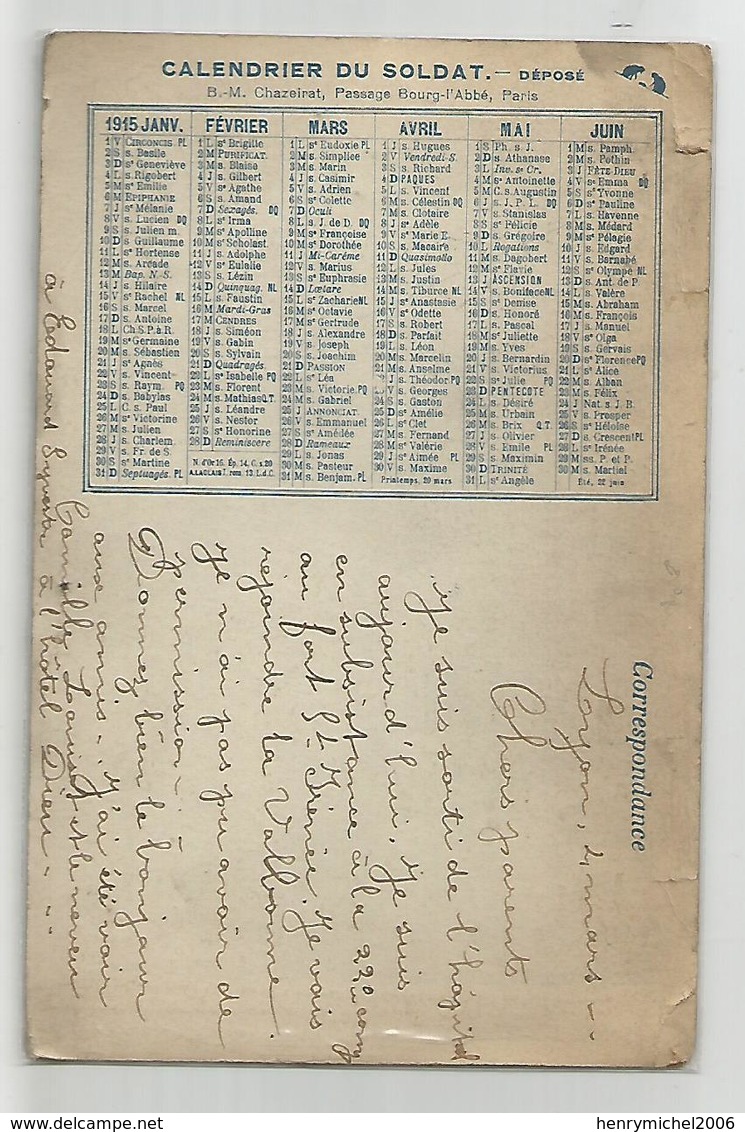 CALENDRIER DU SOLDAT. — DÉPOSÉ
B.-M. Chazeirat, Passage Bourg-l'Abbé, Paris
1915 JANV.
1 V CIRCONCIS. PL
2 S s. Basile
3 D se Geneviève
4 L s. Rigobert
5 M s. Emilie
6 M EPIPHANIE
7 J s. Mélanie
8 V s. Lucien DQ
9 S s. Julien m.
10 D s. Guillaume
11 L se Hortense
12 M s. Arcade
13 M Bap. N.-S.
14 J s. Hilaire
15 V se Rachel NL
16 S s. Marcel
17 D s. Antoine
18 L Ch S.P. à R.
19 M se Germaine
20 M s. Sébastien
21 J se Agnès
22 V s. Vincent
23 S s. Raym. PQ
24 D s. Babylas
25 L C. s. Paul
26 M se Victorine
27 M s. Julien
28 J s. Charlem.
29 V s. Fr. de S.
30 S se Martine
31 D Septuagés. PL
FÉVRIER
1 L se Brigitte
2 M PURIFICAT.
3 M s. Blaise
4 J s. Gilbert
5 V se Agathe
6 S s. Amand
7 D Sexagés. DQ
8 L se Irma
9 M s. Apolline
10 M se Scholast.
11 J s. Adolphe
12 V se Eulalie
13 S s. Lézin
14 D Quinquag. NL
15 L s. Faustin
16 M Mardi-Gras
17 M CENDRES
18 J s. Siméon
19 V s. Gabin
20 S s. Sylvain
21 D Quadragés.
22 L se Isabelle PQ
23 M s. Florent
24 M s. Mathias Q.T.
25 J s. Léandre
26 V s. Nestor
27 S se Honorine
28 D Reminiscere
N. d'Or 16. Ép. 14, C. s. 29
A. LACLAIS I. rom. 13. L.d. C.
MARS
1 L se Eudoxie PL
2 M s. Simplice
3 M s. Marin
4 J s. Casimir
5 V s. Adrien
6 S se Colette
7 D Oculi
8 L s. J. de D. DQ
9 M se Françoise
10 M se Dorothée
11 J Mi-Carême
12 V s. Marius
13 S se Euphrasie
14 D Lætare
15 L se Zacharie NL
16 M se Octavie
17 M se Gertrude
18 J s. Alexandre
19 V s. Joseph
20 S s. Joachim
21 D PASSION
22 L se Léa
23 M s. Victorie. PQ
24 M s. Gabriel
25 J ANNONCIAT.
26 V s. Emmanuel
27 S se Amédée
28 D Rameaux
29 L s. Jonas
30 M s. Pasteur
31 M s. Benjam. PL
AVRIL
1 J s. Hugues
2 V Vendredi-S.
3 S s. Richard
4 D PAQUES
5 L s. Vincent
6 M s. Célestin DQ
7 M s. Clotaire
8 J se Adèle
9 V se Marie E.
10 S s. Macaire
11 D Quasimodo
12 L s. Jules
13 M s. Justin
14 M s. Tiburce NL
15 J se Anastasie
16 V se Odette
17 S s. Robert
18 D s. Parfait
19 L s. Léon
20 M s. Marcelin
21 M s. Anselme
22 J s. Théodor PQ
23 V s. Georges
24 S s. Gaston
25 D se Amélie
26 L s. Clet
27 M s. Fernand
28 M se Valérie
29 J se Aimée PL
30 V s. Maxime
Printemps. 20 mars
MAI
1 S Ph. s. J.
2 D s. Athanase
3 L Inv. se Cr.
4 M se Antoinette
5 M C. s. Augustin
6 J s. J. P. L. DQ
7 V s. Stanislas
8 S se Félicie
9 D s. Grégoire
10 L Rogations
11 M s. Dagobert
12 M se Flavie
13 J ASCENSION
14 V s. Boniface NL
15 S se Denise
16 D s. Honoré
17 L s. Pascal
18 M se Juliette
19 M s. Yves
20 J s. Bernardin
21 V s. Victorius
22 S se Julie PQ
23 D PENTECOTE
24 L s. Désiré
25 M s. Urbain
26 M s. Brix Q.T.
27 J s. Olivier
28 V s. Emile PL
29 S s. Maximin
30 D TRINITÉ
31 L se Angèle
JUIN
1 M s. Pamph.
2 M s. Pothin
3 J FÊTE-DIEU
4 V se Emma DQ
5 S se Yvonne
6 D se Pauline
7 L s. Ravenne
8 M s. Médard
9 M se Pélagie
10 J s. Edgard
11 V s. Barnabé
12 S se Olympe NL
13 D s. Ant. de P.
14 L s. Valère
15 M s. Abraham
16 M s. François
17 J s. Manuel
18 V se Olga
19 S s. Gervais
20 D se Florence PQ
21 L se Alice
22 M s. Alban
23 M s. Félix
24 J Nat. s. J. B.
25 V s. Prosper
26 S se Héloïse
27 D s. Crescent PL
28 L se Irénée
29 M ss. P. et P.
30 M s. Martial
Été, 22 juin
Correspondance
Lyon, 4 mars
Chers parents
Je suis sorti de l'hôpital
aujourd'hui, Je suis
en subsistance à la 22e comp
au fort St-Irénée. Je vais
rejoindre la Valbonne
Je n'ai pas pu avoir de
Permission
Donnez bien le bonjour
aux amis. J'ai été voir
Camille Louis et le neveu
à Edouard Sylvestre à l'hotel Dieu
henrymichel2006